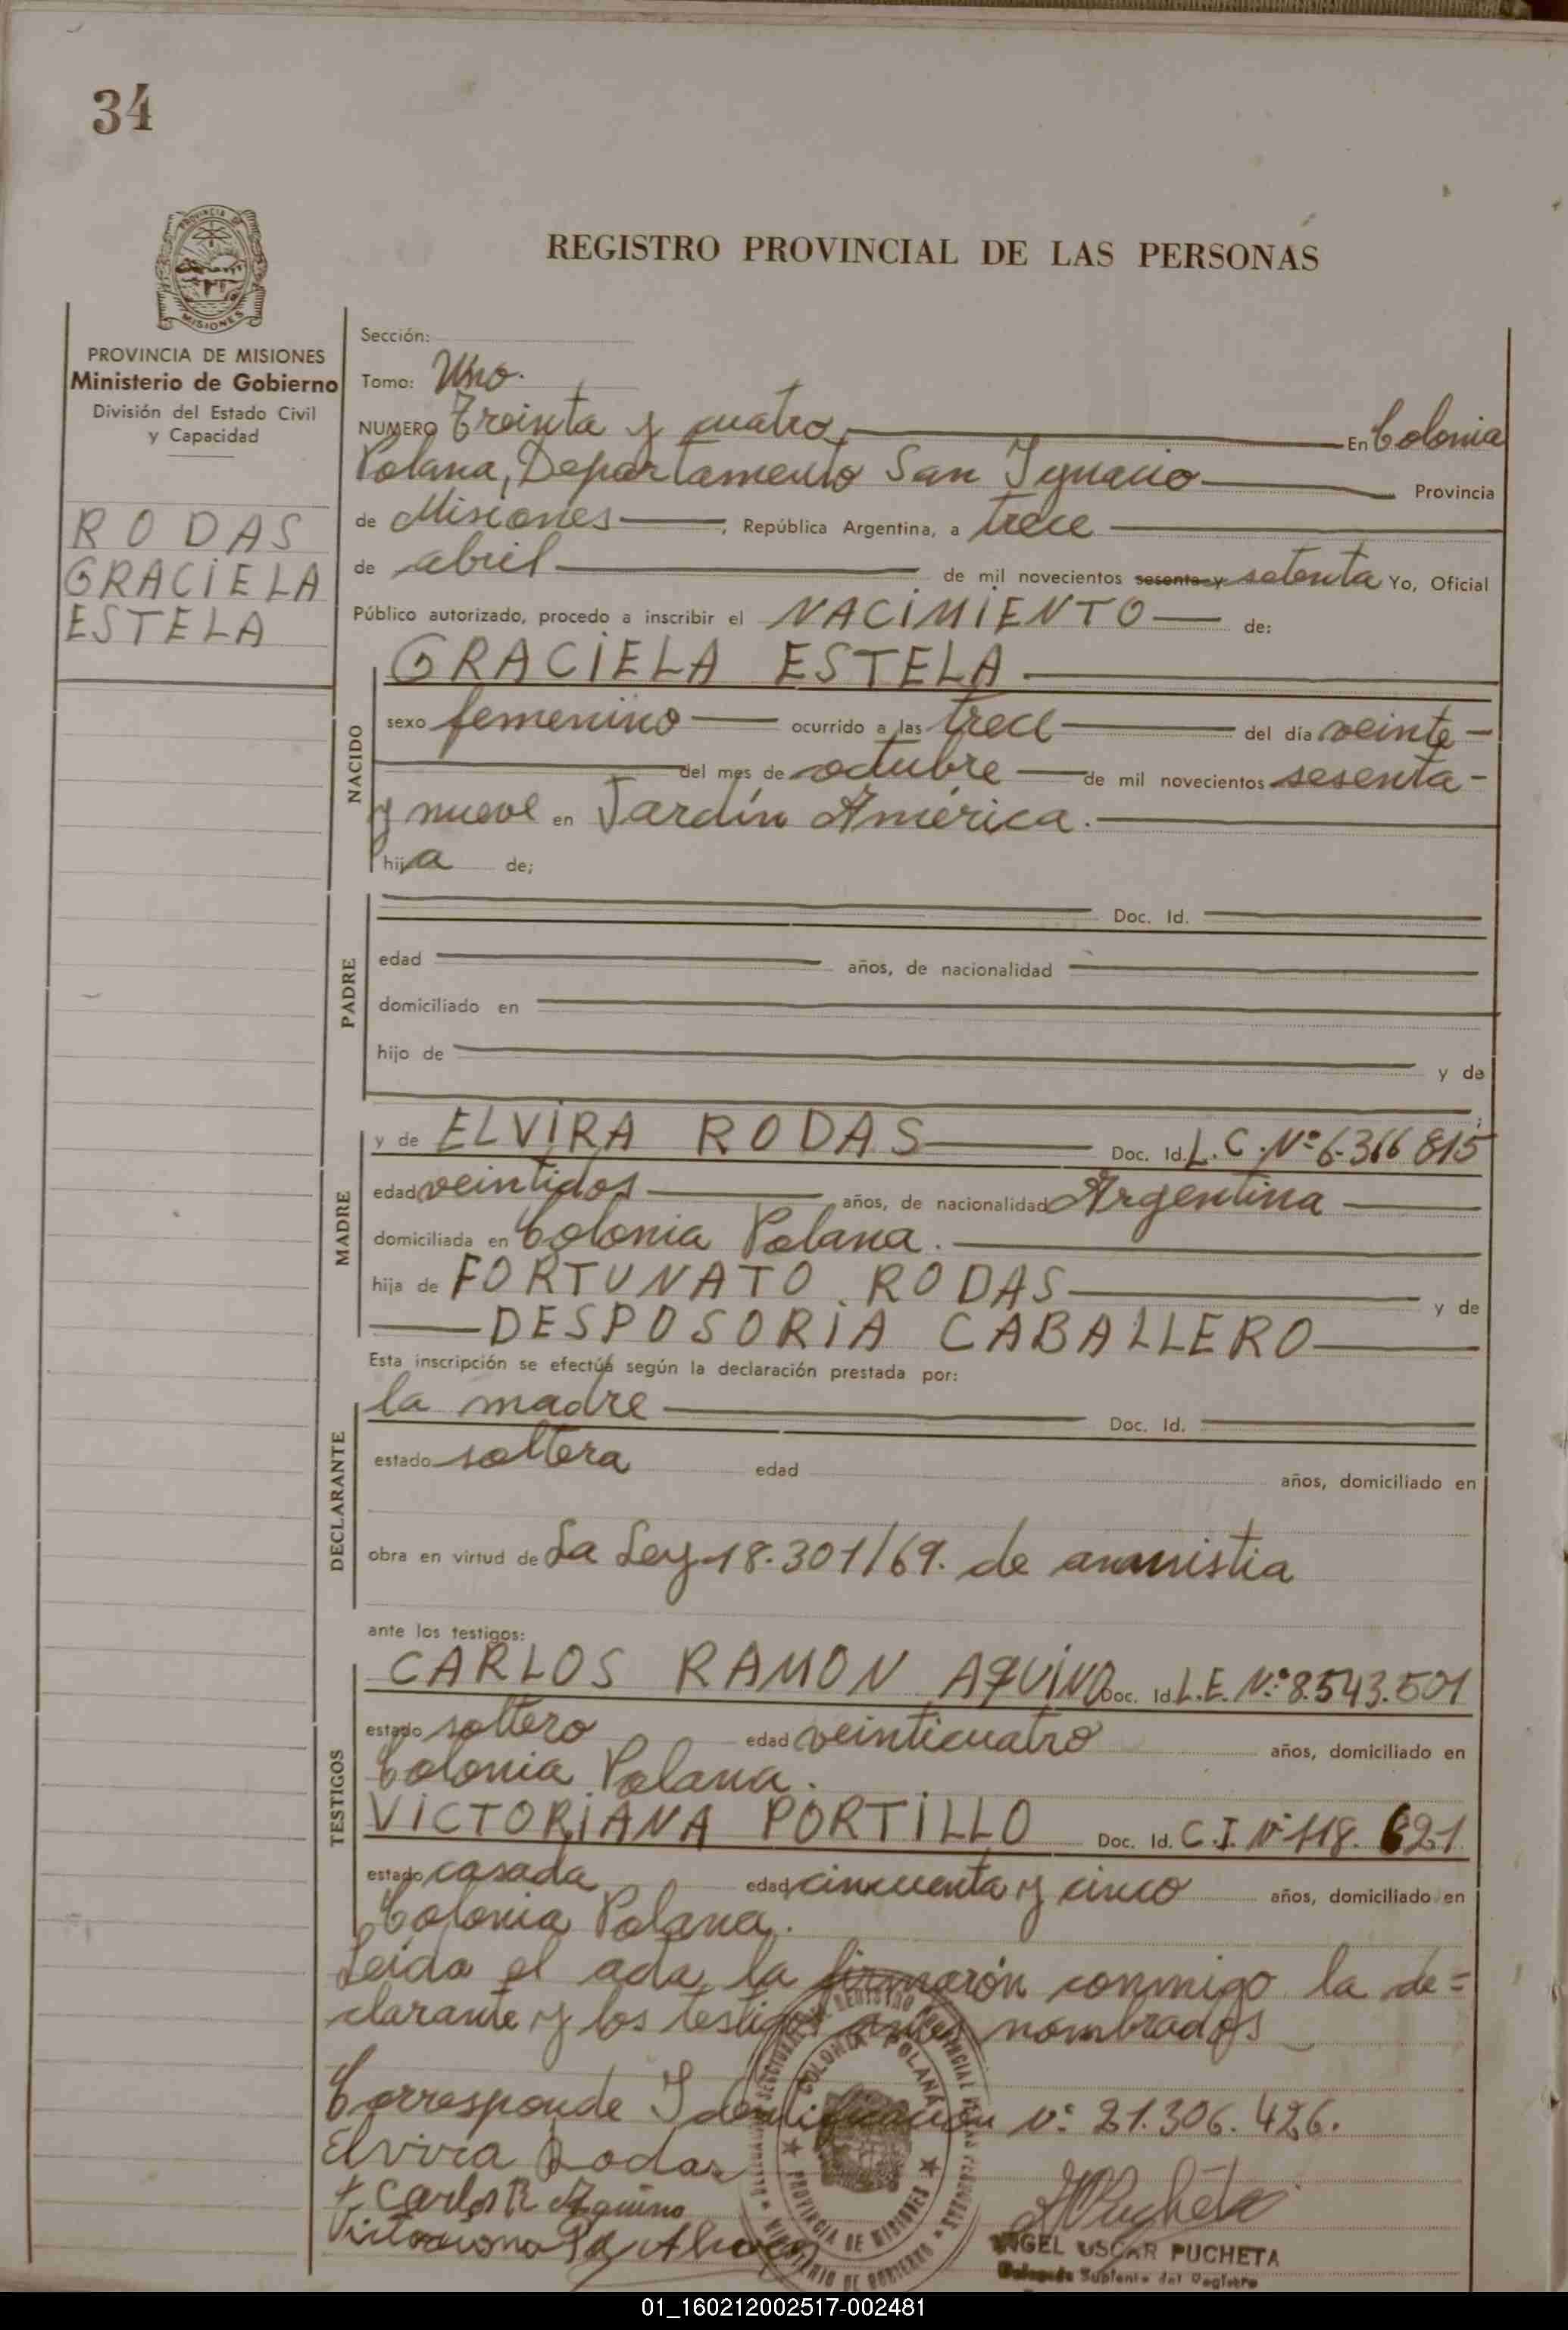 34
REGISTRO PROVINCIAL DE LAS PERSONAS
PROVINCIA DE
MISIONES
PROVINCIA DE MISIONES
Ministerio de Gobierno
División del Estado Civil
y Capacidad
RODAS
GRACIELA
ESTELA
Sección:
Tomo: Uno.
NUMERO Treinta y cuatro En Colonia
Polana, Departamento San Ignacio Provincia
de Misiones, República Argentina, a trece
de abril de mil novecientos sesenta y setenta Yo, Oficial
Público autorizado, procedo a inscribir el NACIMIENTO de:
NACIDO
GRACIELA ESTELA
sexo femenino ocurrido a las trece del día veinte
del mes de octubre de mil novecientos sesenta
y nueve en Jardín América.
hija de;
PADRE
Doc. Id.
edad años, de nacionalidad
domiciliado en
hijo de y de
MADRE
y de ELVIRA RODAS Doc. Id. L.C. Nº 6.366 815
edad veintidos años, de nacionalidad Argentina
domiciliada en Colonia Polana.
hija de FORTUNATO RODAS y de
DESPOSORIA CABALLERO
Esta inscripción se efectúa según la declaración prestada por:
DECLARANTE
la madre Doc. Id.
estado soltera edad años, domiciliado en
obra en virtud de La Ley 18.301/69. de amnistia
ante los testigos:
TESTIGOS
CARLOS RAMON AQUINO Doc. Id. L.E. Nº 8.543.501
estado soltero edad veinticuatro años, domiciliado en
Colonia Polana.
VICTORIANA PORTILLO Doc. Id. C.I. Nº 118.621
estado casada edad cincuenta y cinco años, domiciliado en
Colonia Polana.
Leída el acta, la firmarón conmigo la de=
clarante y los testigos antes nombrados
Corresponde Identificación Nº 21.306.426.
Elvira Rodas
Carlos R Aquino
COLONIA POLANA
PROVINCIA DE MISIONES
Pucheta
ANGEL OSCAR PUCHETA
Delegado Suplente del Registro
01_160212002517-002481